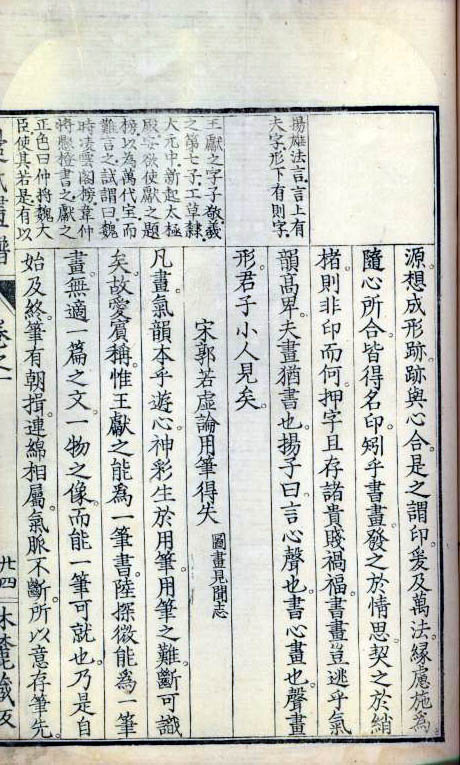 揚雄法言言上有
夫字形下有則字
王獻之字子敬羲
之第七子工草隸
大元中新起太極
殿安欲使獻之題
榜以為萬代宝而
難言之試謂曰魏
時凌雲閣榜韋仲
將懸橙書之獻之
正色曰仲將魏大
臣使其若是有以
源想成形跡跡與心合是之謂印爰及萬法緣慮施為
隨心所合皆得名印矧乎書畫發之於情思契之於綃
楮則非印而何押字且存諸貴賤禍福書畫豈逃乎氣
韻高卑夫畫猶書也揚子曰言心聲也書心畫也聲畫
形君子小人見矣
宋郭若虛論用筆得失 圖畫見聞志
凡畫氣韻本乎遊心神彩生於用筆用筆之難斷可識
矣故愛賓稱惟王獻之能為一筆書陸探微能為一筆
畫無適一篇之文一物之像而能一筆可就也乃是自
始及終筆有朝揖連綿相屬氣脈不斷所以意存筆先
卷之一
廿四